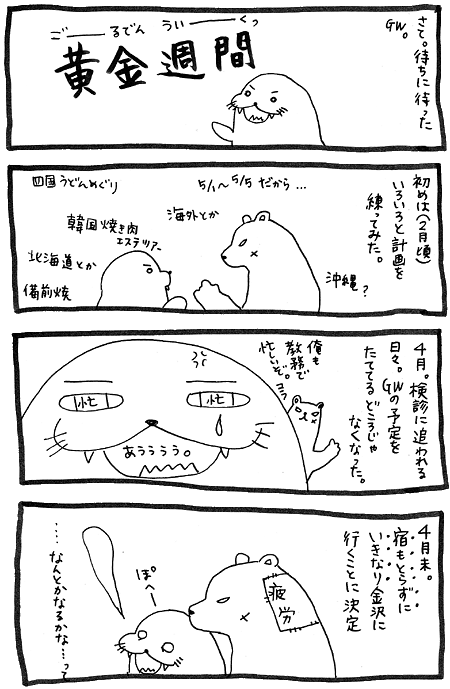 さて。待ちに待った
GW。
ごーるでん うぃーくっ
黄金週間
初めは(2月頃)
いろいろと計画を
練ってみた。
5/1〜5/5 だから…
海外とか
沖縄?
四国うどんめぐり
韓国焼き肉
エステツアー
北海道とか
備前焼
4月。検診に追われる
日々。GWの予定を
たててるどころじゃ
なくなった。
俺も
教務で
忙しいぞ。
忙
忙
あぅぅぅぅ。
4月末。
宿もとらずに
いきなり金沢に
行くことに決定
疲労
ぽへー
……なんとかなるかな…って